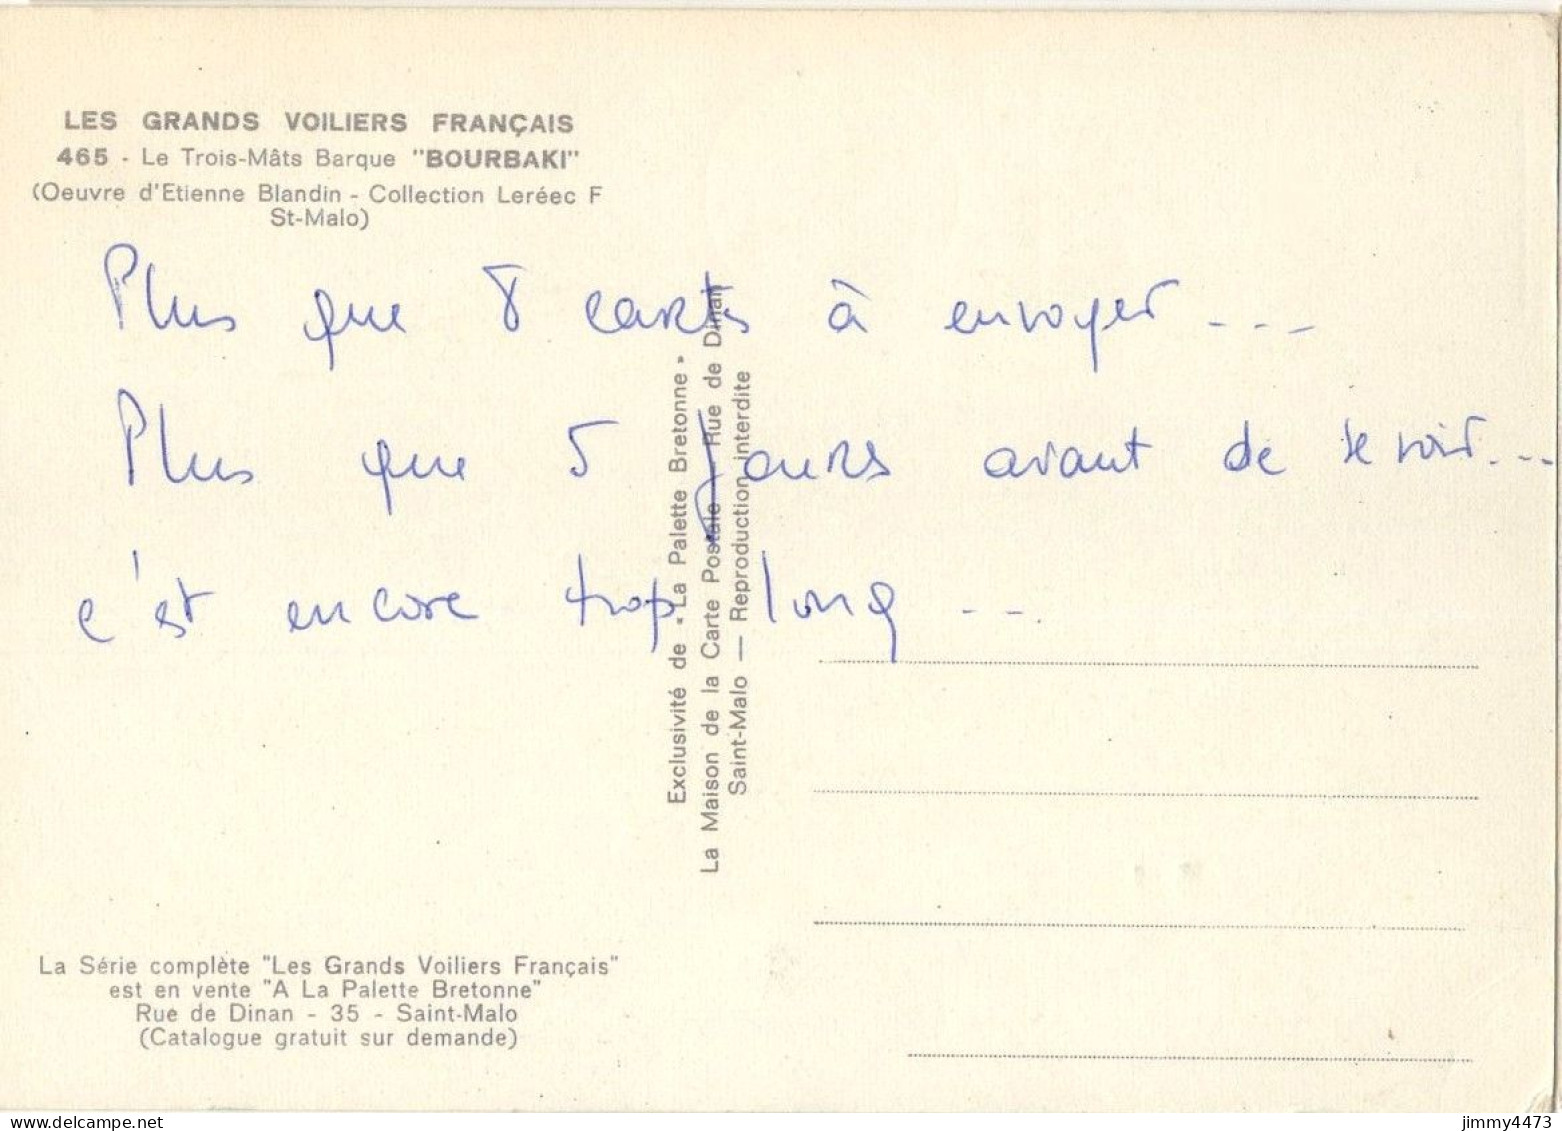 LES GRANDS VOILIERS FRANÇAIS
465 - Le Trois-Mâts Barque "BOURBAKI"
(Oeuvre d'Etienne Blandin - Collection Leréec F
St-Malo)
Plus que 8 cartes à envoyer...
Plus que 5 jours avant de te voir...
c'est encore trop long...
Exclusivité de « La Palette Bretonne »
La Maison de la Carte Postale Rue de Dinan
Saint-Malo — Reproduction interdite
La Série complète "Les Grands Voiliers Français"
est en vente "A La Palette Bretonne"
Rue de Dinan - 35 - Saint-Malo
(Catalogue gratuit sur demande)
www.delcampe.net
jimmy4473